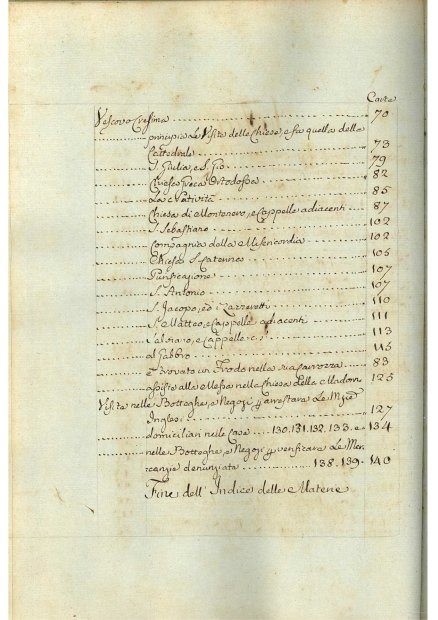 Carte
Vescovo Cresima 70
principia le Visite delle Chiese, e fa quella della
Cattedrale 73
S. Giulia, e S. Gio 79
Chiesa Greca Ortodossa 82
La Natività 85
Chiesa di Montenero, e Cappelle adiacenti 87
S. Sebastiano 102
Compagnia della Misericordia 102
Chiesa S. Caterina 105
Purificazione 107
S. Antonio 107
S. Jacopo, ed i Lazzeretti 110
S. Matteo, e Cappelle adiacenti 111
Salviano, e Cappelle 113
al Gabbro 115
è trovato un Frodo nella sua Carrozza 83
assiste alla Messa nella Chiesa della Madon. 125
Visite nelle Botteghe, e Negozi p arrestare Le
Inglesi 127
domiciliari nelle Case 130. 131. 132. 133. e 134
nelle Botteghe, e Negozi p verificare Le Mer
canzie denunziate 138. 139. 140
Fine dell' Indice delle Materie